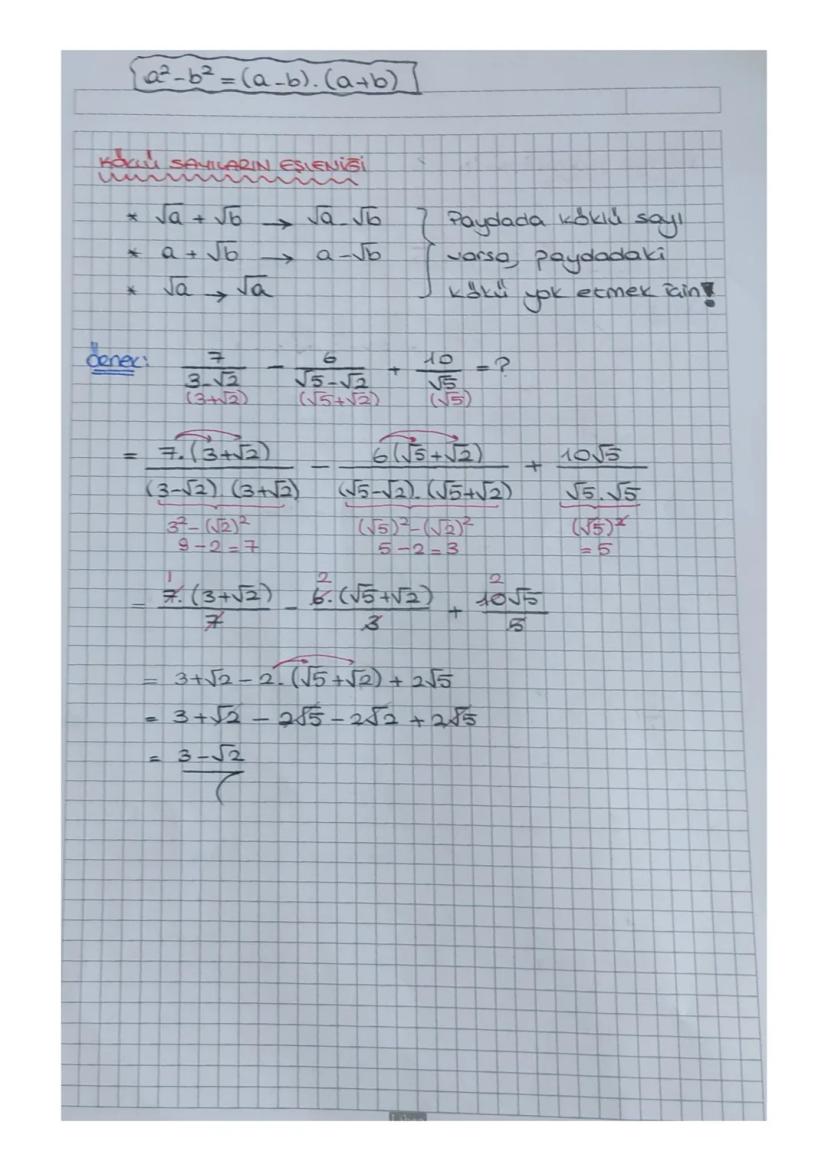 a²-b² = (a-b).(a+b)
KÖKLÜ SAYILARIN EŞLENİĞİ
* √a + √b → √a-√b } Paydada köklü sayı
* a + √b → a-√b varsa, paydadaki
* √a → √a kökü yok etmek için!
örnek: 7/(3-√2) - 6/(√5-√2) + 10/√5 = ?
(3+√2) (√5+√2) (√5)
= 7.(3+√2)/((3-√2).(3+√2)) - 6(√5+√2)/((√5-√2).(√5+√2)) + 10√5/(√5.√5)
3²-(√2)² (√5)²-(√2)² (√5)²
9-2=7 5-2=3 =5
1 2 2
= 7.(3+√2)/7 - 6.(√5+√2)/3 + 10√5/5
= 3+√2-2.(√5+√2)+2√5
= 3+√2-2√5-2√2+2√5
= 3-√2